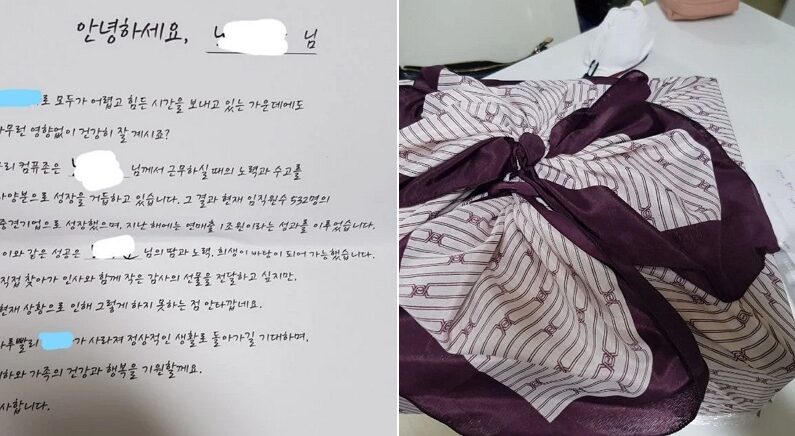 안녕하세요, 님
로 모두가 어렵고 힘든 시간을 보내고 있는 가운데에도
무런 영향없이 건강히 잘 계시죠?
리 컴퓨존은 님께서 근무하실 때의 노력과 수고를
양분으로 성장을 거듭하고 있습니다. 그 결과 현재 임직원수 532명의
중견기업으로 성장했으며, 지난 해에는 연매출 1조원이라는 성과를 이루었습니다.
이와 같은 성공은 님의 땀과 노력, 희생이 바탕이 되어 가능했습니다.
직접 찾아가 인사와 함께 작은 감사의 선물을 전달하고 싶지만,
현재 상황으로 인해 그렇게 하지 못하는 점 안타깝네요.
루빨리 가 사라져 정상적인 생활로 돌아가길 기대하며,
하와 가족의 건강과 행복을 기원할께요.
사합니다.